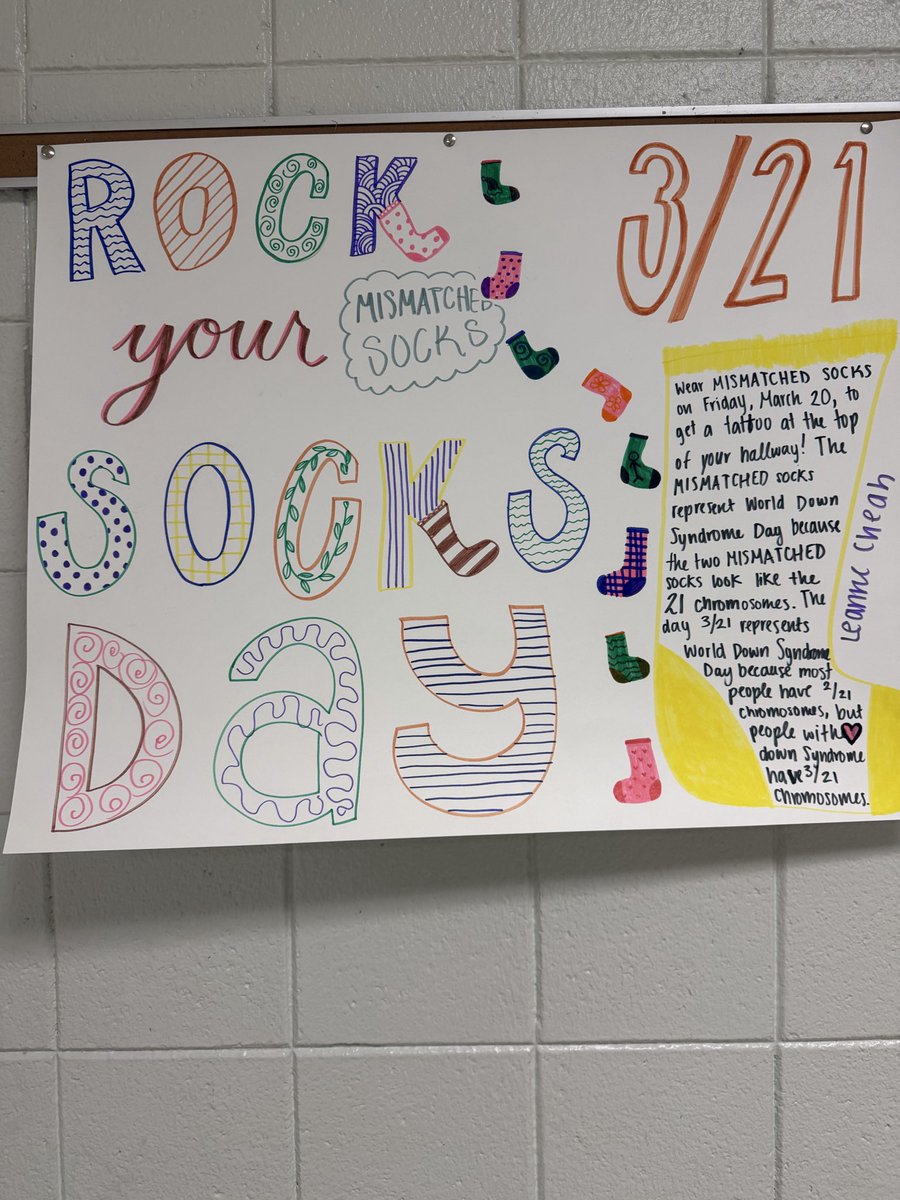 ROCK
3/21
your
MISMATCHED
SOCKS
SOCKS
Day
Wear MISMATCHED SOCKS
on Friday, March 20, to
get a tattoo at the top
of your hallway! The
MISMATCHED socks
represent World Down
Syndrome Day because
the two MISMATCHED
socks look like the
21 chromosomes. The
day 3/21 represents
World Down Syndrome
Day because most
people have 2/21
chromosomes, but
people with
down Syndrome
have 3/21
chromosomes.
Leanne Cheah